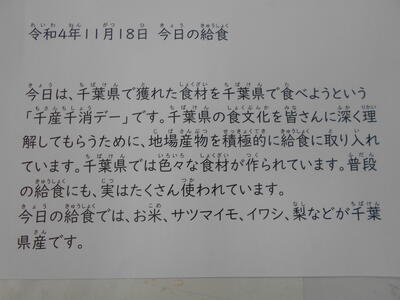 令和4年11月18日 今日の給食
今日は、千葉県で獲れた食材を千葉県で食べようという
「千産千消デー」です。千葉県の食文化を皆さんに深く理
解してもらうために、地場産物を積極的に給食に取り入れ
ています。千葉県では色々な食材が作られています。普段
の給食にも、実はたくさん使われています。
今日の給食では、お米、サツマイモ、イワシ、梨などが千葉
県産です。